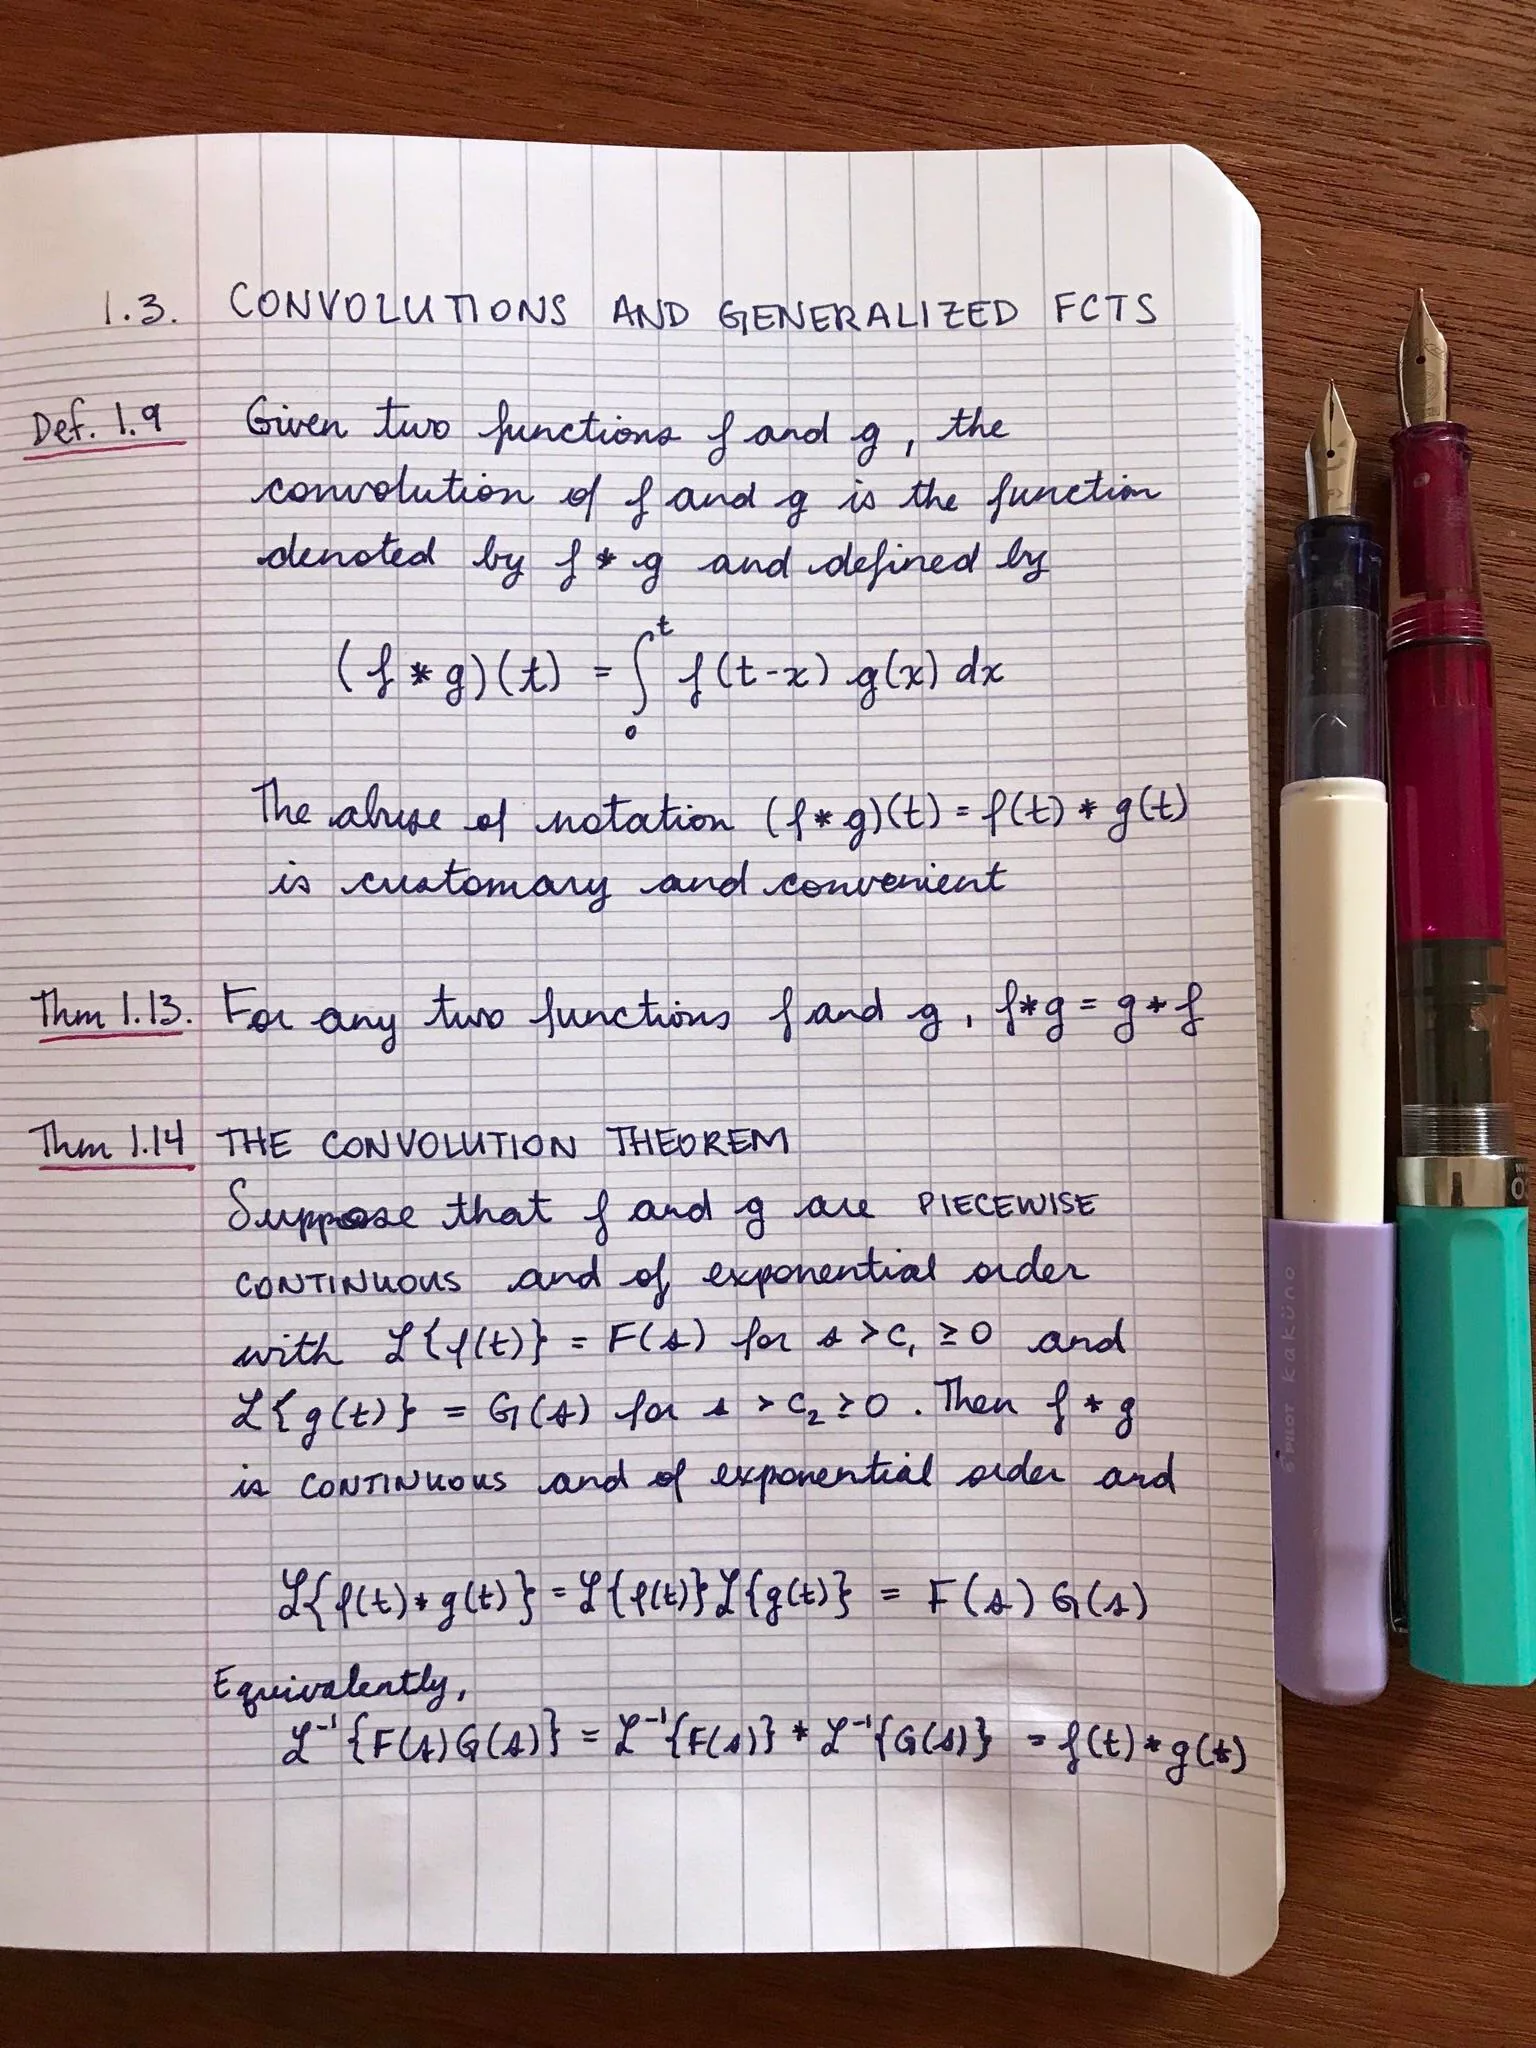 1.3. CONVOLUTIONS AND GENERALIZED FCTS
Def. 1.9 Given two functions f and g, the
convolution of f and g is the function
denoted by f * g and defined by
(f * g)(t) = ∫₀ᵗ f(t-x) g(x) dx
The abuse of notation (f * g)(t) = f(t) * g(t)
is customary and convenient
Thm 1.13. For any two functions f and g, f*g = g*f
Thm 1.14 THE CONVOLUTION THEOREM
Suppose that f and g are PIECEWISE
CONTINUOUS and of exponential order
with ℒ{f(t)} = F(s) for s > C₁ ≥ 0 and
ℒ{g(t)} = G(s) for s > C₂ ≥ 0. Then f * g
is CONTINUOUS and of exponential order and
ℒ{f(t) * g(t)} = ℒ{f(t)}ℒ{g(t)} = F(s) G(s)
Equivalently,
ℒ⁻¹{F(s)G(s)} = ℒ⁻¹{F(s)} * ℒ⁻¹{G(s)} = f(t) * g(t)
PILOT kaküno